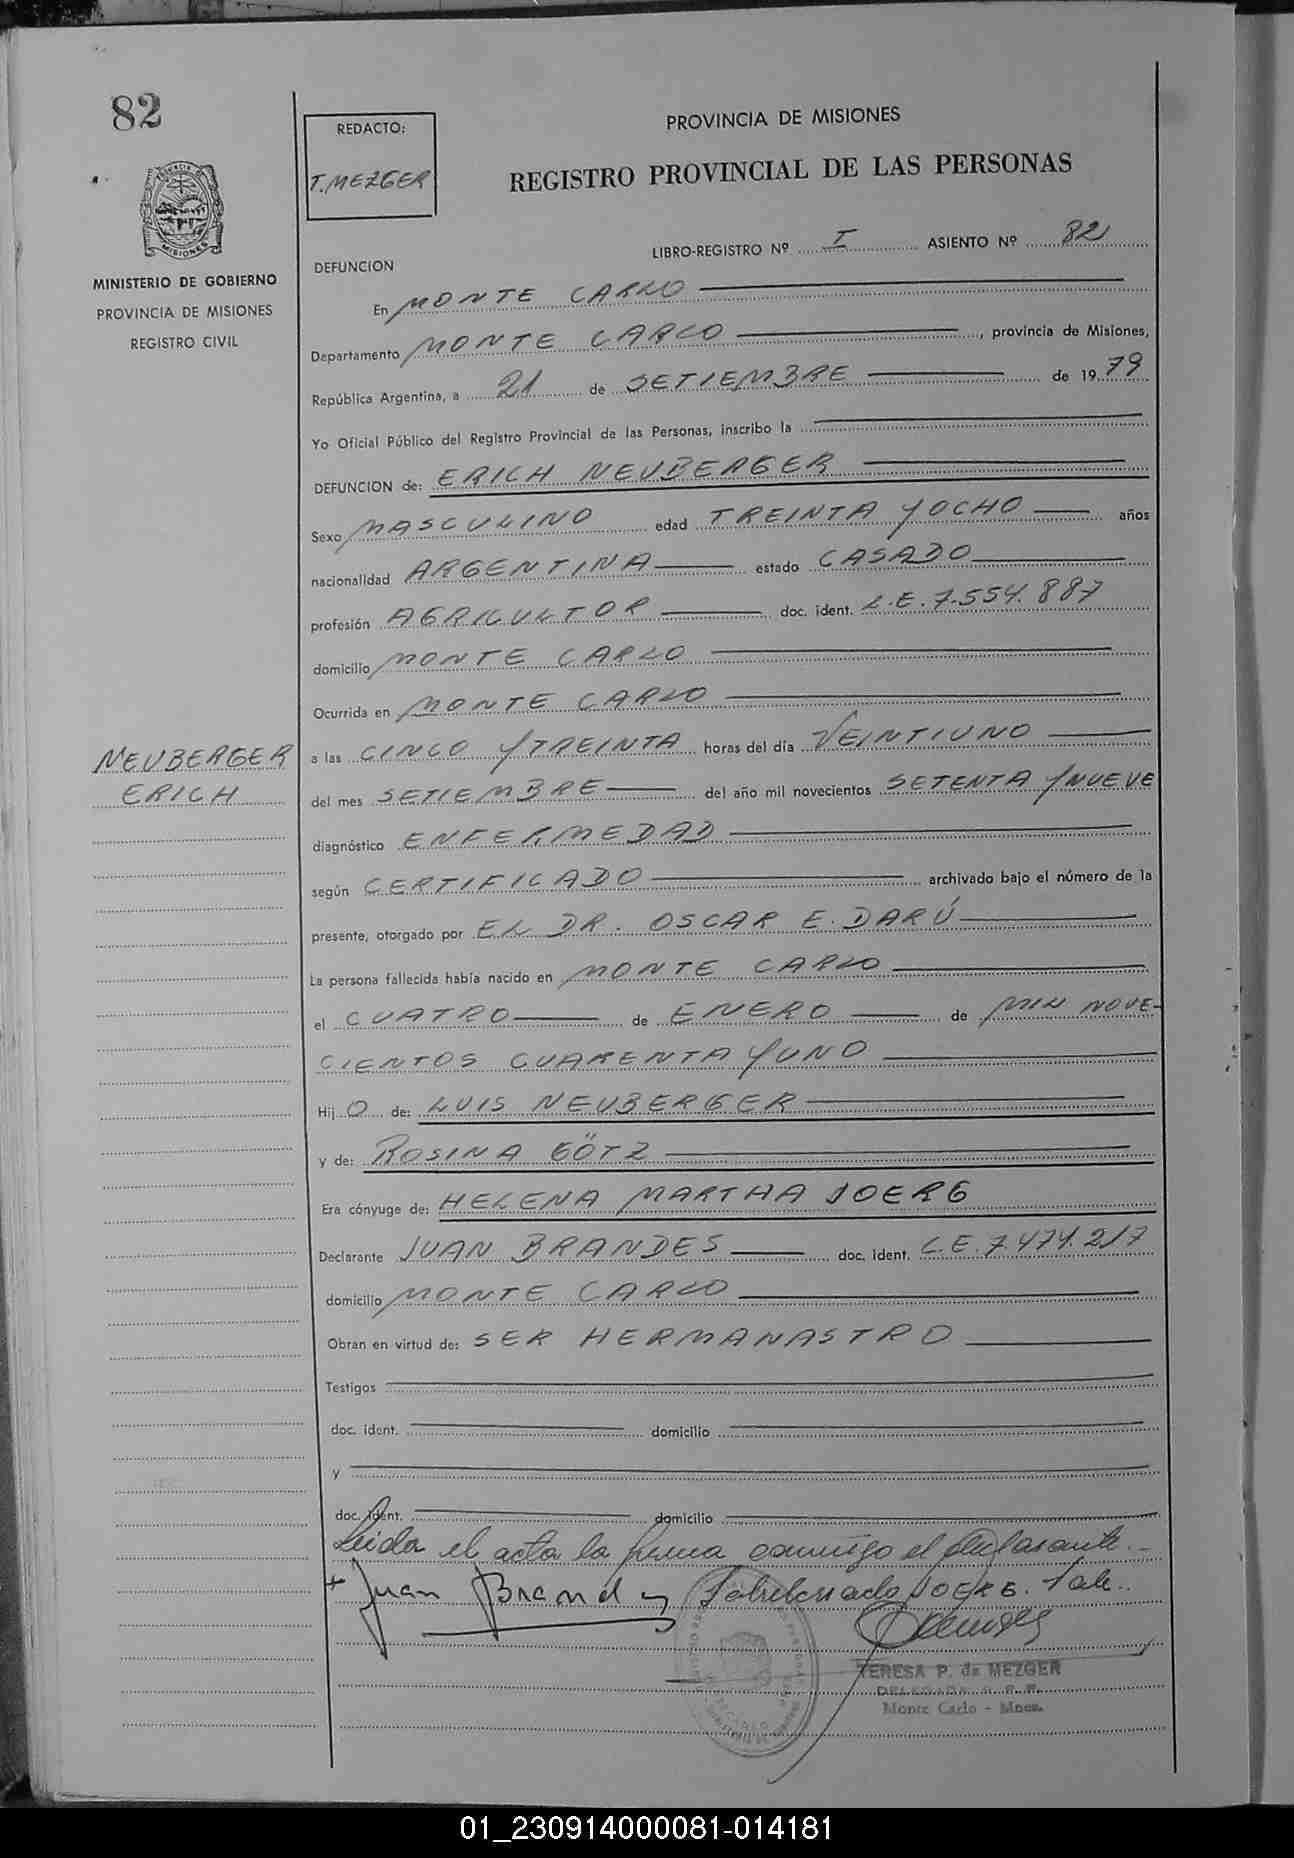 82
REDACTO:
T. MEZGER
PROVINCIA DE MISIONES
REGISTRO PROVINCIAL DE LAS PERSONAS
MISIONES
MINISTERIO DE GOBIERNO
PROVINCIA DE MISIONES
REGISTRO CIVIL
LIBRO-REGISTRO Nº I ASIENTO Nº 82
DEFUNCION
En MONTE CARLO
Departamento MONTE CARLO, provincia de Misiones,
República Argentina, a 21 de SETIEMBRE de 1979
Yo Oficial Público del Registro Provincial de las Personas, inscribo la
DEFUNCION de: ERICH NEUBERGER
Sexo MASCULINO edad TREINTA Y OCHO años
nacionalidad ARGENTINA estado CASADO
profesión AGRICULTOR doc. ident. L.E. 7.554.887
domicilio MONTE CARLO
Ocurrida en MONTE CARLO
NEUBERGER
ERICH
a las CINCO Y TREINTA horas del día VEINTIUNO
del mes SETIEMBRE del año mil novecientos SETENTA Y NUEVE
diagnóstico ENFERMEDAD
según CERTIFICADO archivado bajo el número de la
presente, otorgado por EL DR. OSCAR E. DARÚ
La persona fallecida había nacido en MONTE CARLO
el CUATRO de ENERO de MIL NOVE-
CIENTOS CUARENTA Y UNO
Hij O de: LUIS NEUBERGER
y de: ROSINA GÖTZ
Era cónyuge de: HELENA MARTHA JOERG
Declarante JUAN BRANDES doc. ident. L.E. 7.474.217
domicilio MONTE CARLO
Obran en virtud de: SER HERMANASTRO
Testigos
doc. ident. domicilio
y
doc. ident. domicilio
Leída el acta la firma conmigo el declarante.-
+ Juan Brandes Sobreborrado JOERG. Vale.
TERESA P. de MEZGER
DELEGADA R. P. P.
Monte Carlo - Mnes.
01_230914000081-014181